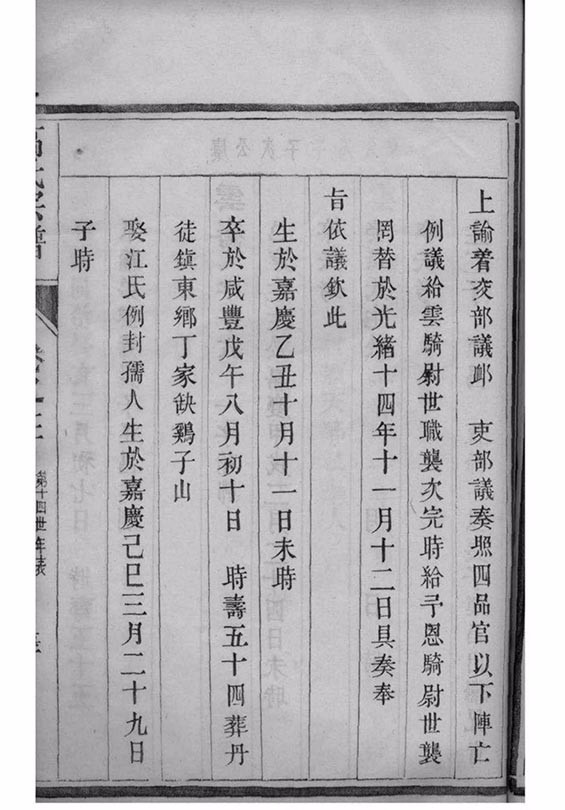 上諭着交部議卹　吏部議奏照四品官以下陣亡
例議給雲騎尉世職襲次完時給予恩騎尉世襲
罔替於光緒十四年十一月十二日具奏奉
旨依議欽此
生於嘉慶乙丑十月十一日未時
卒於咸豐戊午八月初十日　時壽五十四葬丹
徒鎮東鄉丁家缺鷄子山
娶江氏例封孺人生於嘉慶己巳三月二十九日
子時
氏宗譜
第十四世年表